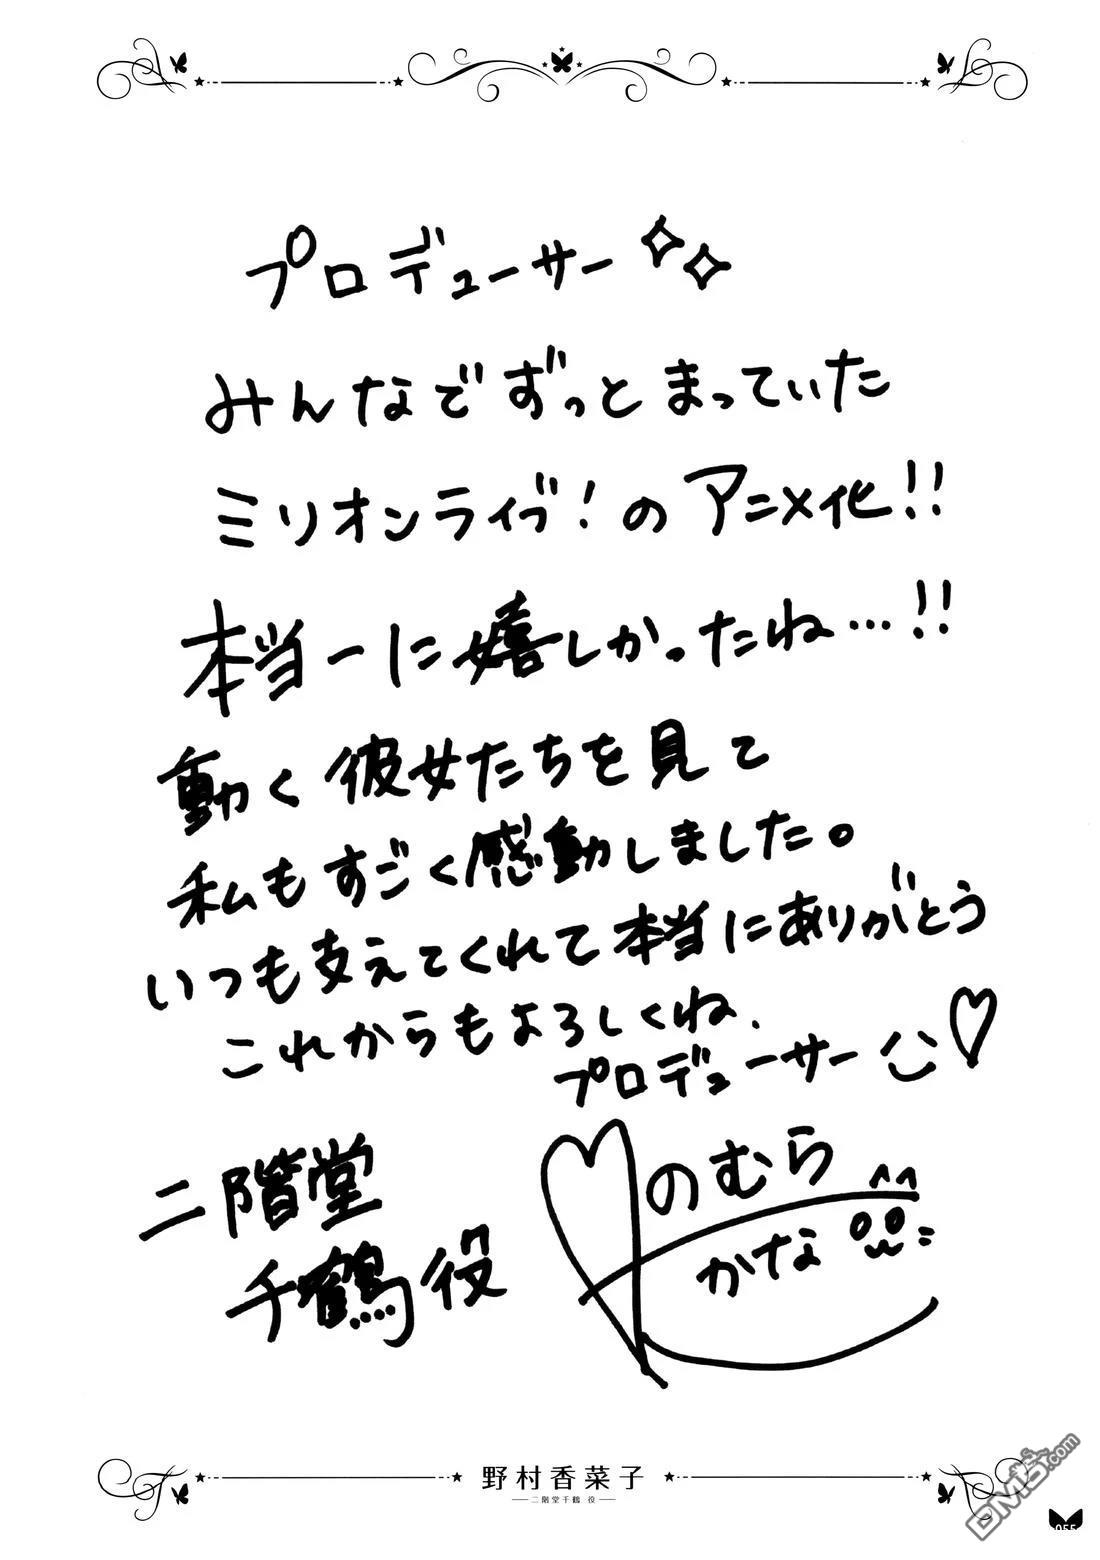 プロデューサー
みんなでずっとまっていた
ミリオンライブ!のアニメ化!!
本当ーに嬉しかったね…!!
動く彼女たちを見て
私もすごく感動しました。
いつも支えてくれて本当にありがとう
これからもよろしくね、
プロデューサー
二階堂
千鶴役
のむら
かな
野村香菜子
二階堂千鶴 役
DM5.com
055